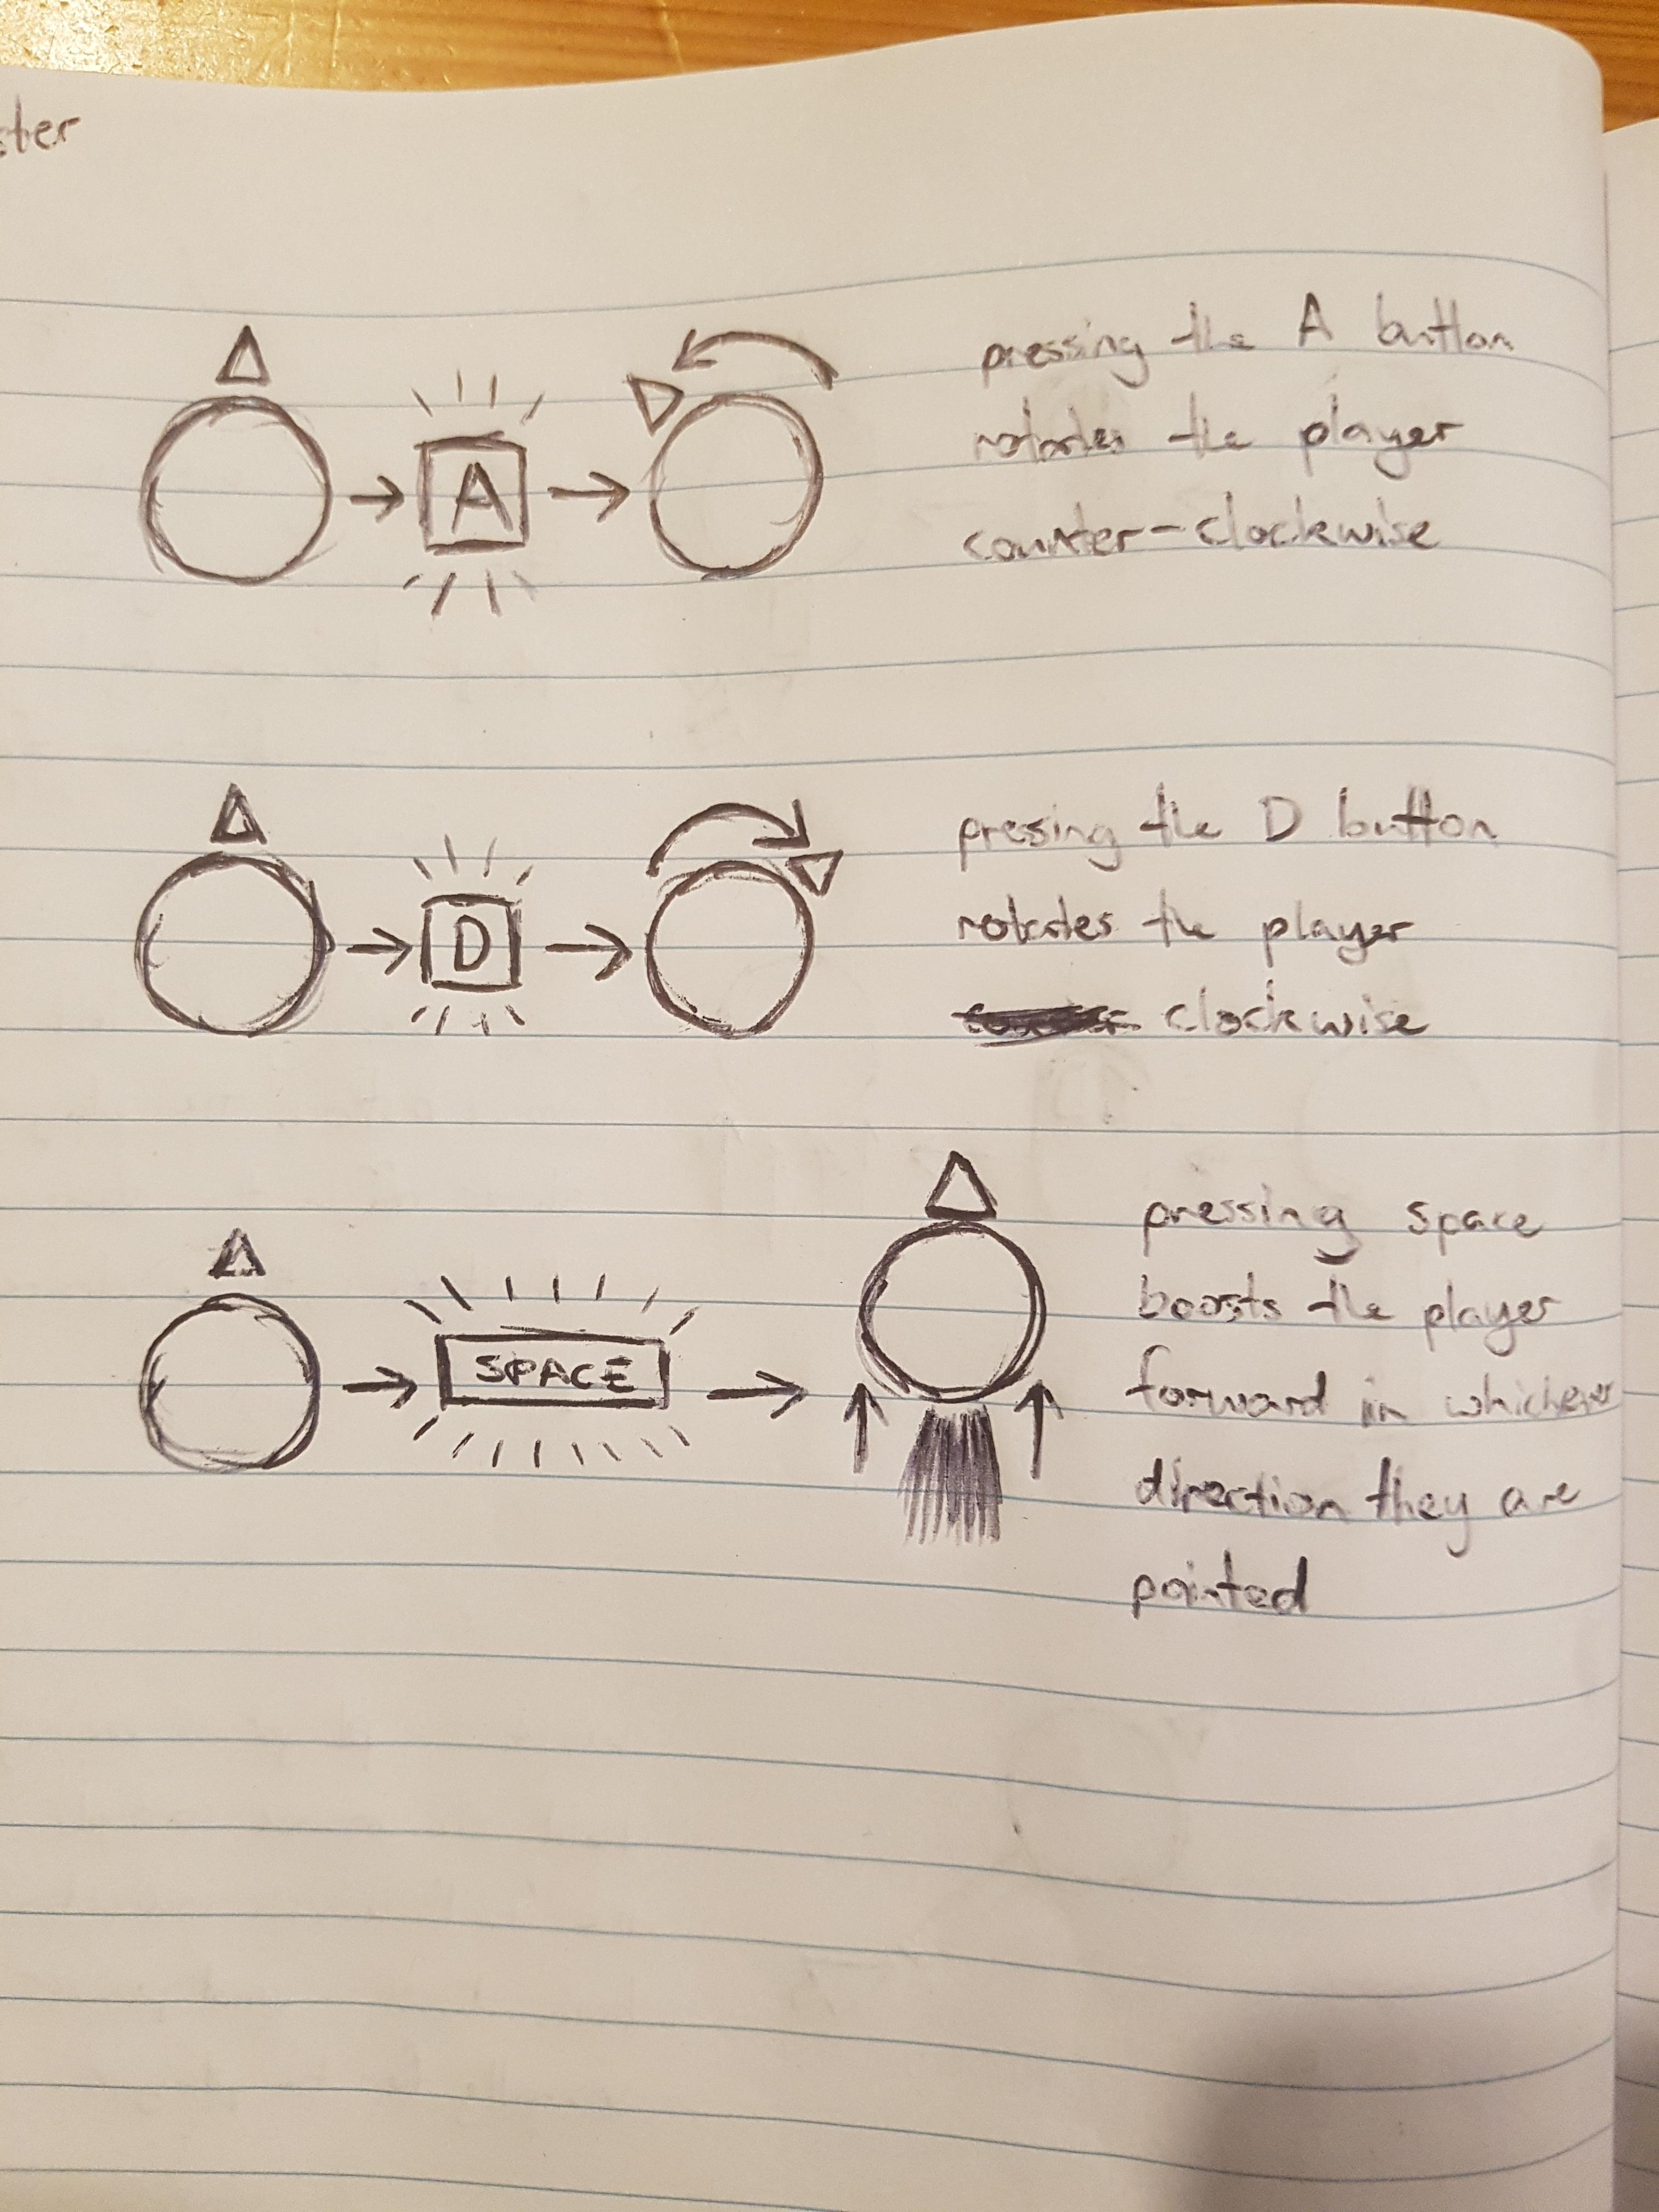 ster
A
pressing the A button
rotates the player
counter-clockwise
D
pressing the D button
rotates the player
clockwise
SPACE
pressing space
boosts the player
forward in whichever
direction they are
pointed